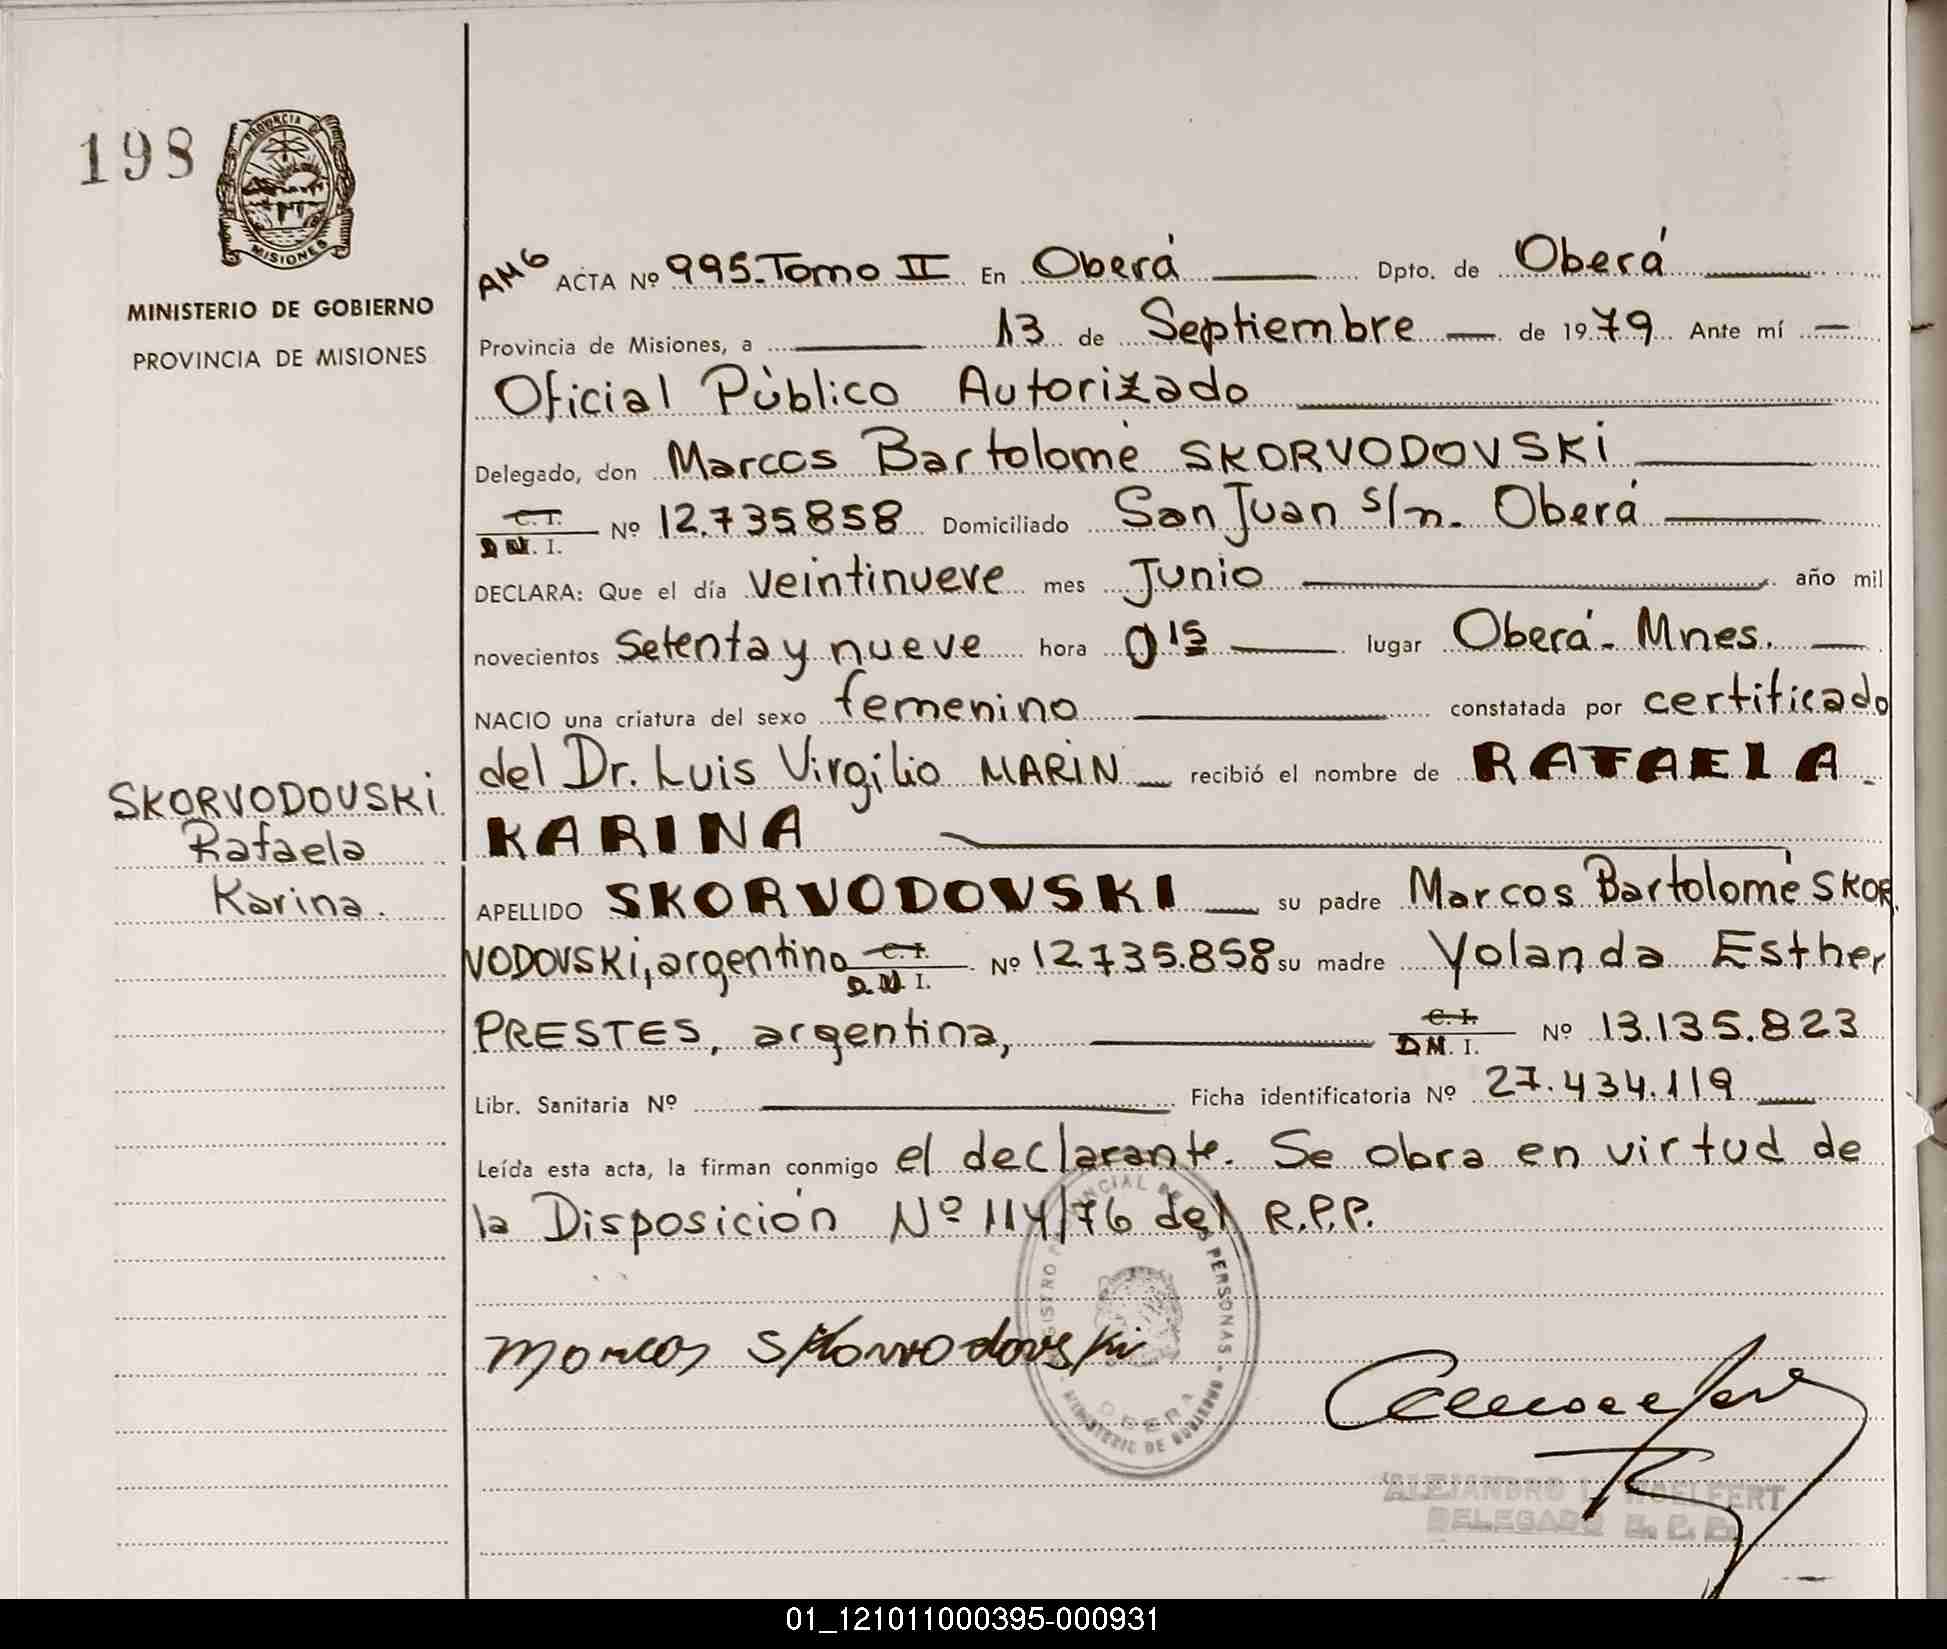 198
PROVINCIA DE
MISIONES
MINISTERIO DE GOBIERNO
PROVINCIA DE MISIONES
SKORVODOVSKI
Rafaela
Karina.
AMG ACTA Nº 995. Tomo II En Oberá Dpto. de Oberá
Provincia de Misiones, a 13 de Septiembre de 1979 Ante mí
Oficial Público Autorizado
Delegado, don Marcos Bartolomé SKORVODOVSKI
C. I.
D N. I. Nº 12.735858 Domiciliado San Juan s/n. Oberá
DECLARA: Que el día veintinueve mes Junio año mil
novecientos setenta y nueve hora 0 15 lugar Oberá - Mnes.
NACIO una criatura del sexo femenino constatada por certificado
del Dr. Luis Virgilio MARIN recibió el nombre de RAFAELA
KARINA
APELLIDO SKORVODOVSKI su padre Marcos Bartolomé SKOR
VODOVSKI, argentino C. I.
D. N. I. Nº 12735.858 su madre Yolanda Esther
PRESTES, argentina, C. I.
D N. I. Nº 13.135.823
Libr. Sanitaria Nº Ficha identificatoria Nº 27.434.119
Leída esta acta, la firman conmigo el declarante. Se obra en virtud de
la Disposición Nº 114/76 del R.P.P.
Marcos Skorvodovski
REGISTRO PROVINCIAL DE LAS PERSONAS
OBERA
MINISTERIO DE GOBIERNO
ALEJANDRO
DELEGADO R. P. P.
01_121011000395-000931